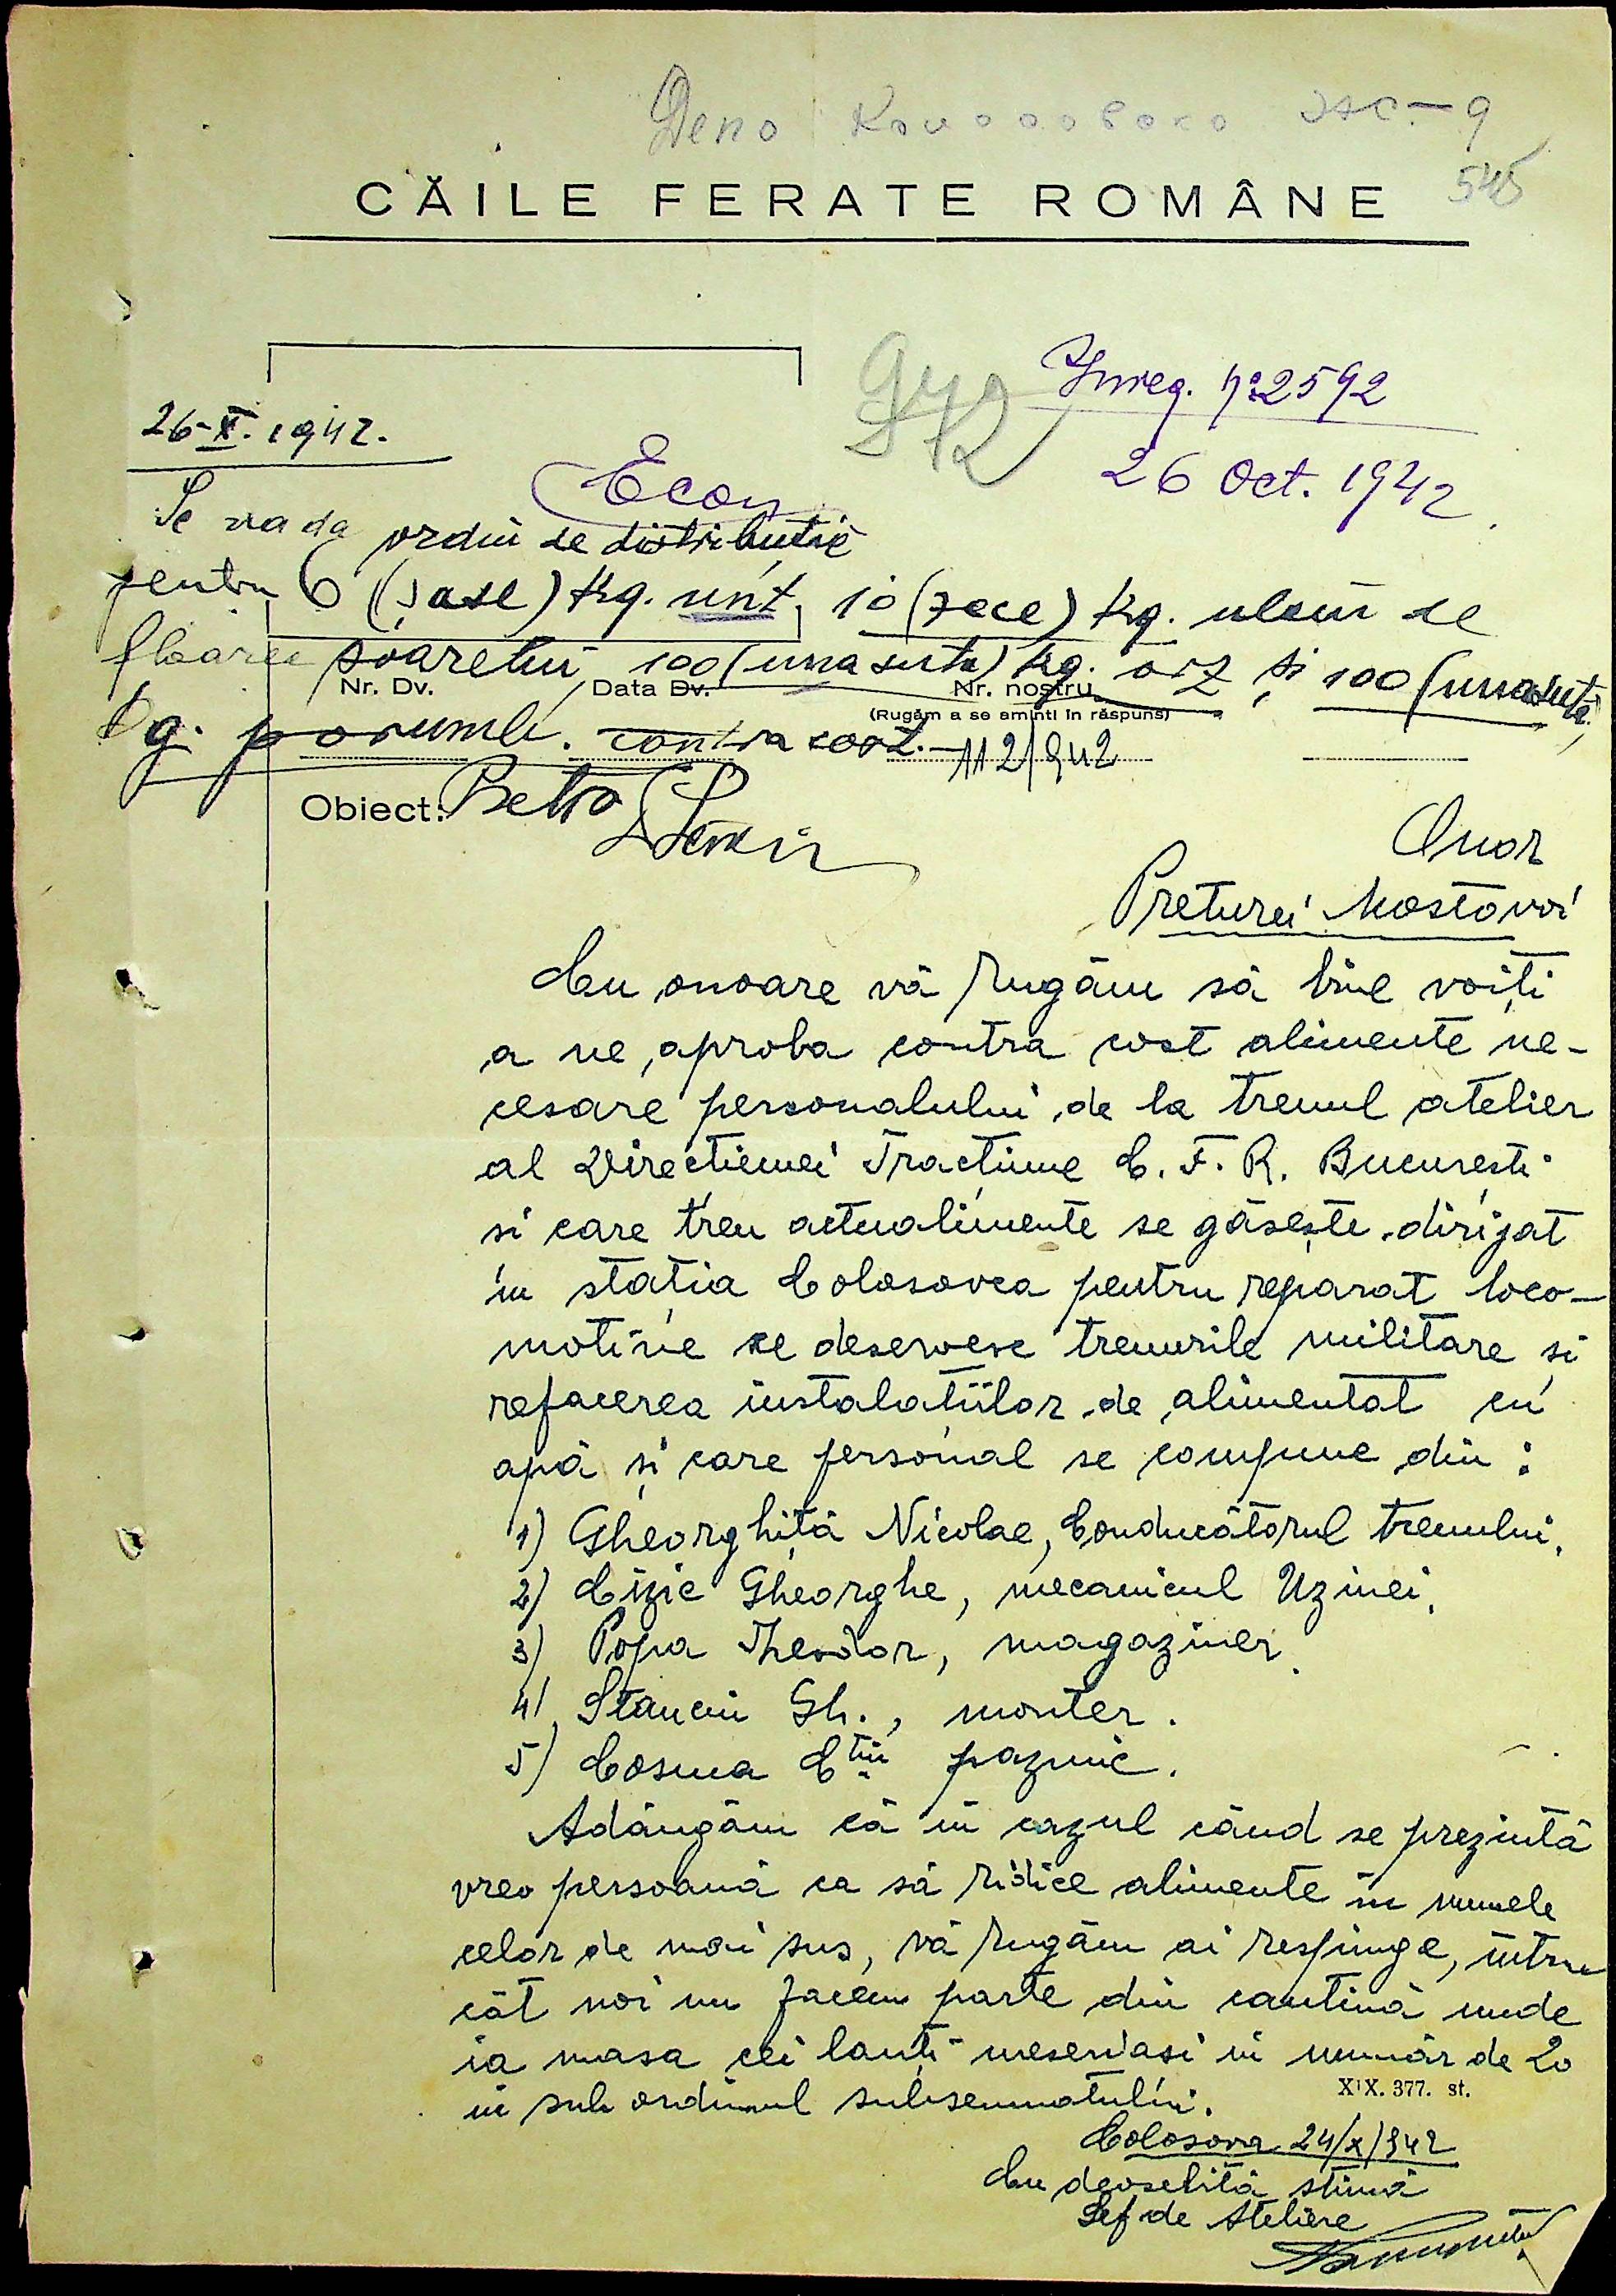 Депо
CĂILE FERATE ROMÂNE
545
Inreg. No 2592
26 Oct. 1942.
26-X-1942.
Econ
Se va da ordin de distributie
pentru 6 (șase) kg. unt, 10 (zece) kg. uleiu de
floarea soarelui, 100 (una suta) kg. orz și 100 (una sută)
kg. porumb. contra cost.-
Nr. Dv. Data Dv. Nr. nostru
(Rugăm a se aminti în răspuns)
112/942
Obiect:
Onor
Preturei Mostovoi
Cu onoare vă rugăm să bine voiți
a ne aproba contra cost alimente ne-
cesare personalului de la trenul atelier
al Direcțiunei Tracțiune C. F. R. Bucuresti
si care tren actualimente se găsește dirijat
in stația Colosovca pentru reparat loco-
motive ce deservesc trenurile militare și
refacerea instalatiilor de alimentat cu
apă și care personal se compune din :
1) Gheorghiță Nicolae, Conducătorul trenului.
2) Cizic Gheorghe, mecanicul Uzinei.
3) Popa Theodor, magaziner.
4) Stanciu Gh., monter.
5) Cosma Ctin paznic.
Adăugăm că in cazul când se prezintă
vreo persoană ca să ridice alimente în numele
celor de mai sus, vă rugăm ai respinge, întru
cât noi nu facem parte din cantină unde
ia masa cei lanți meseriasi in număr de 20
in sub ordinul subsemnatului.
XIX. 377. st.
Colosova 24/X/942
Cu deosebită stimă
Șef de Ateliere